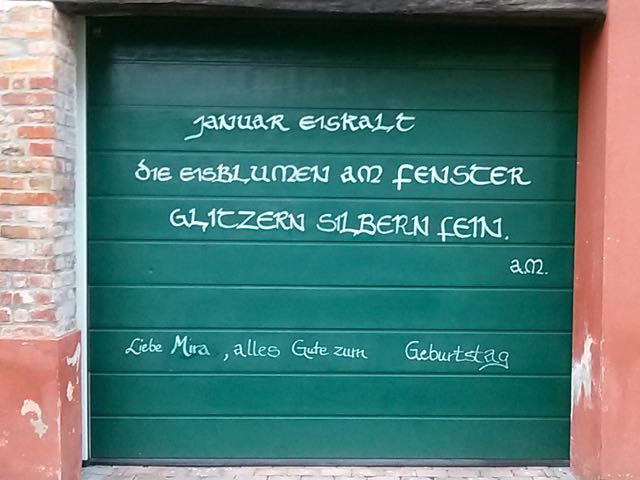 januar eiskalt
die eisblumen am fenster
glitzern silbern fein.
a.m.
Liebe Mira , alles Gute zum Geburtstag